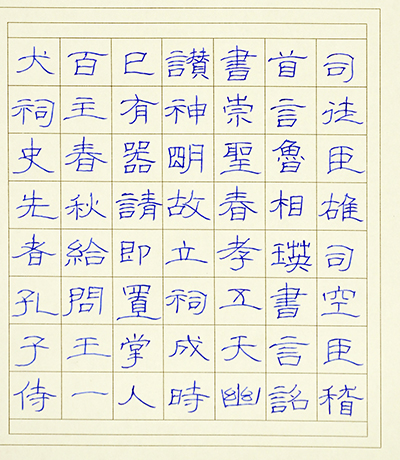 司徒臣雄司空臣稽
首言魯相瑛書言詔
書崇聖春孝五天幽
讃神明故立祠成時
巳有器請即置掌人
百主春秋給問王一
犬祠史先者孔子侍